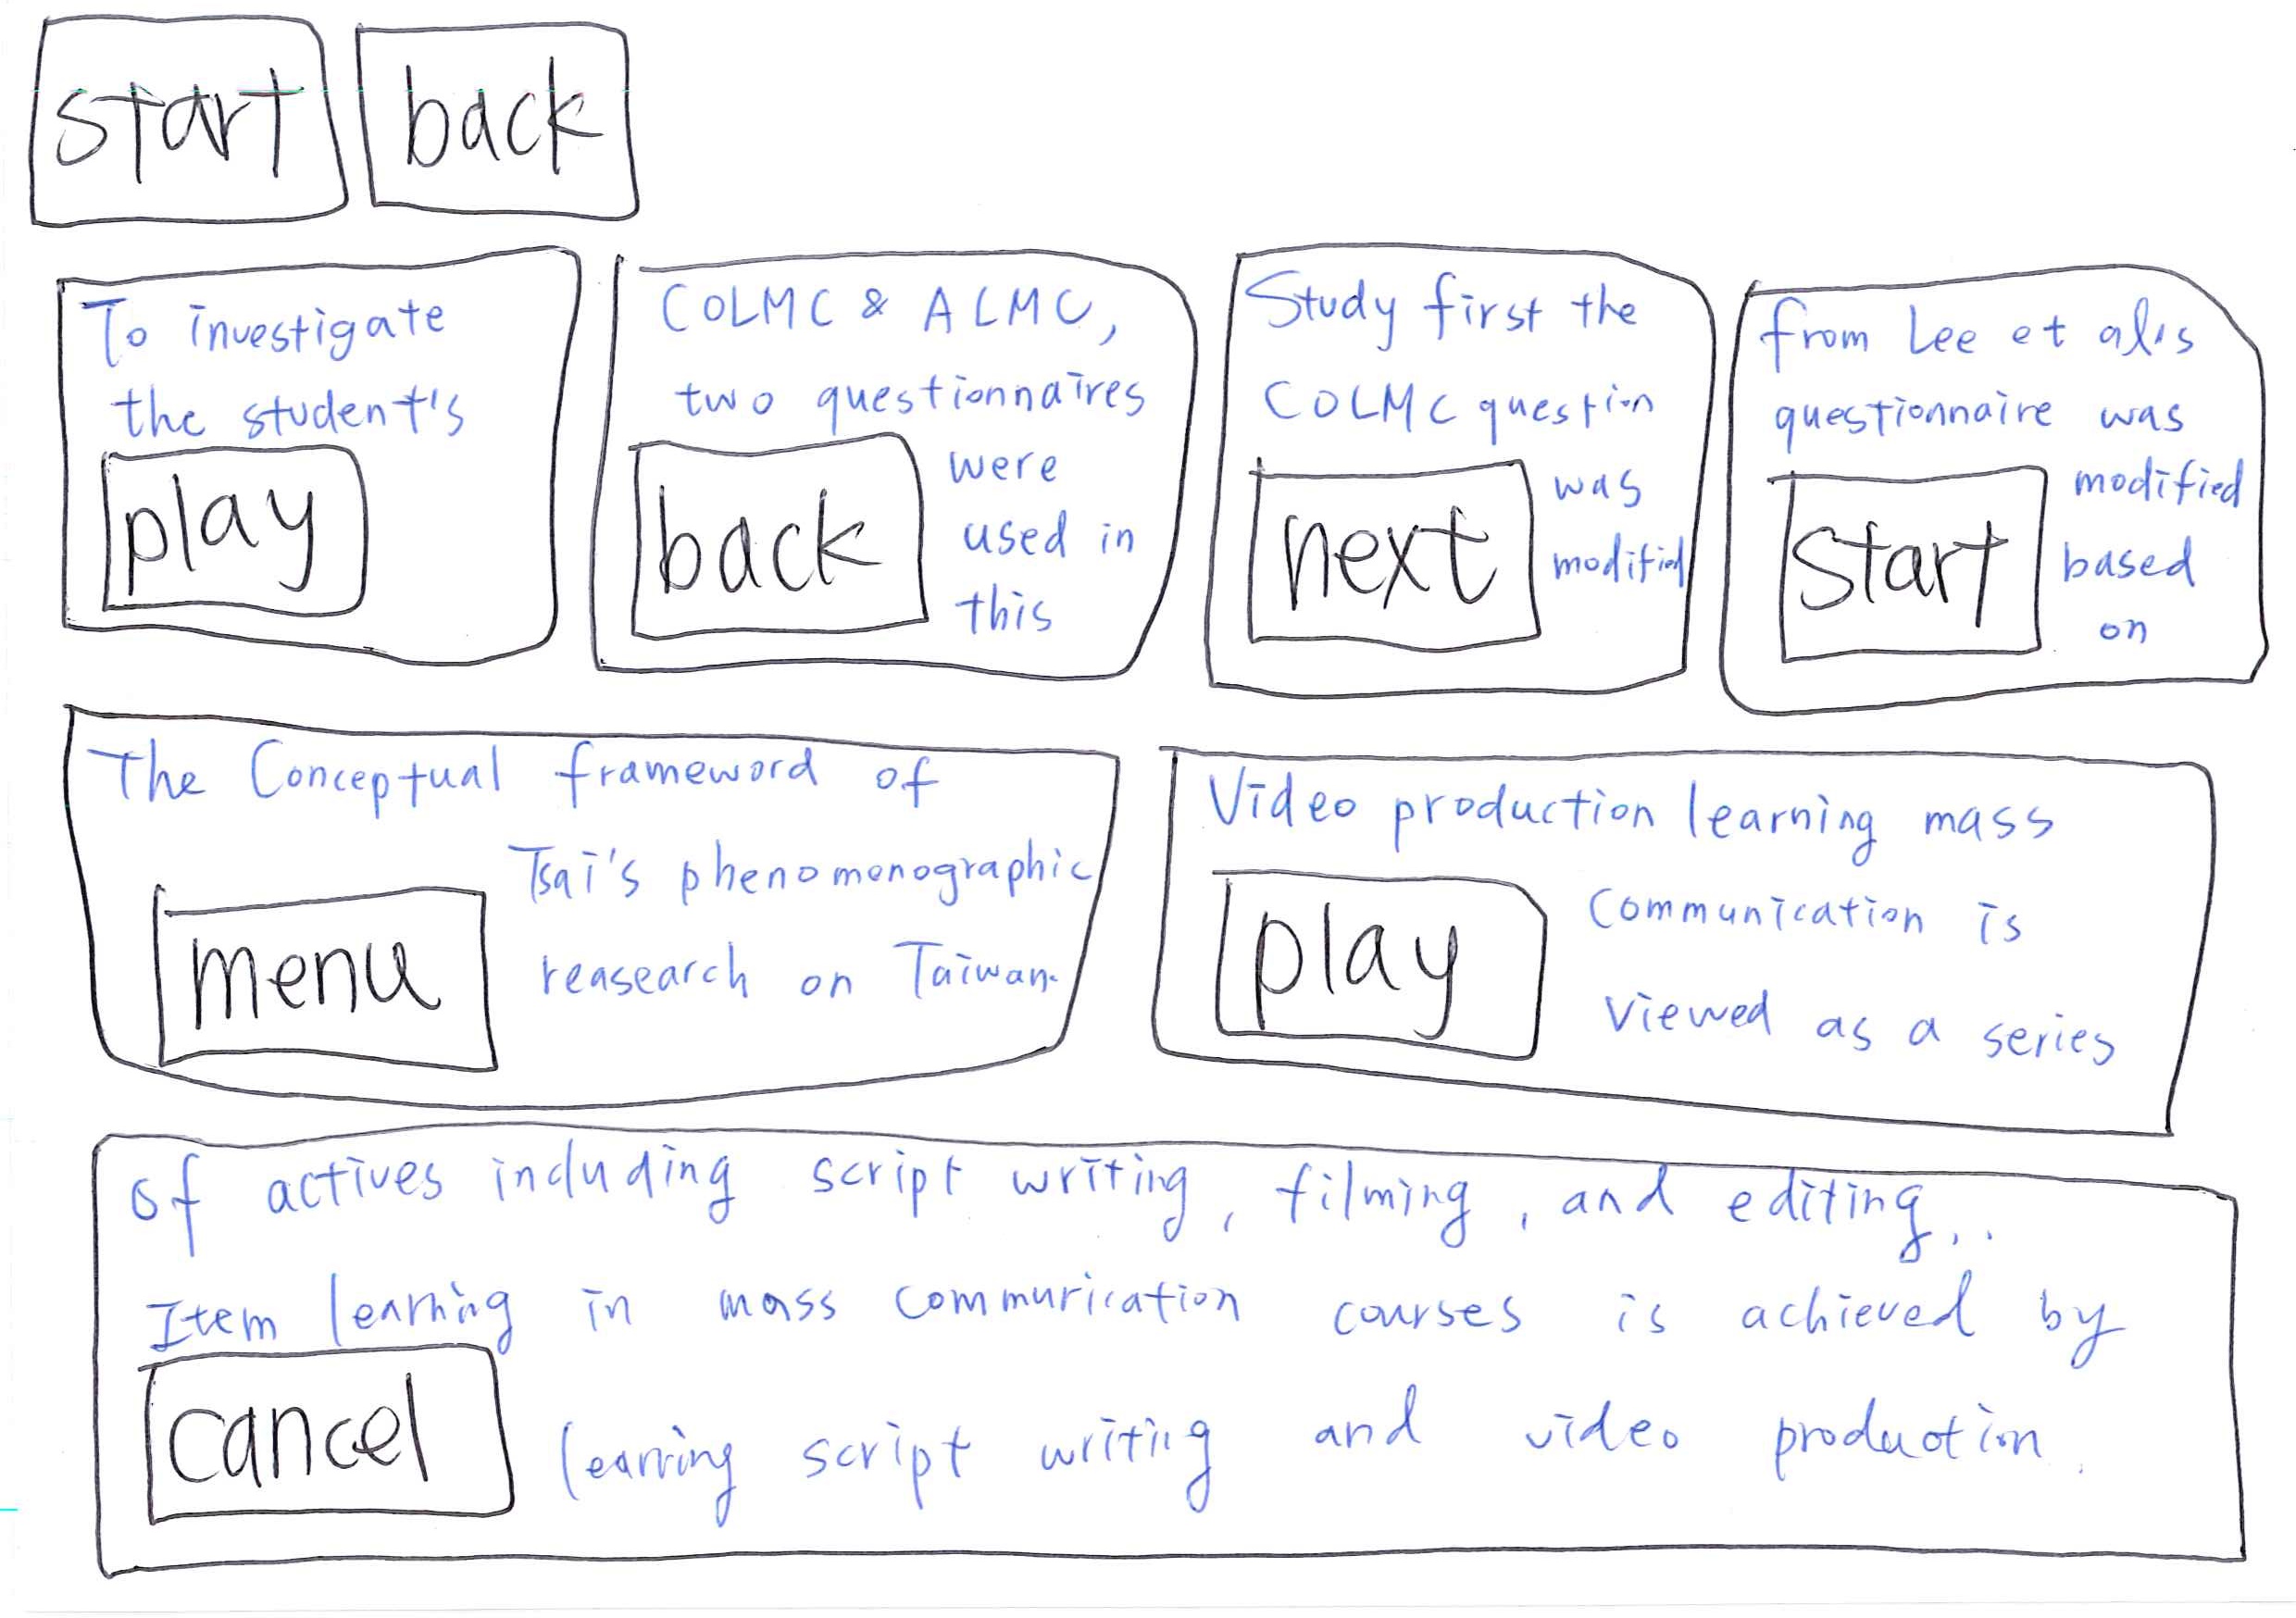 start
back
To investigate
the student's
play
COLMC & ALMC,
two questionnaires
were
used in
this
back
Study first the
COLMC question
was
modified
next
from Lee et al's
questionnaire was
modified
based
on
start
The Conceptual frameword of
Tsai's phenomonographic
reasearch on Taiwan.
menu
Video production learning mass
Communication is
viewed as a series
play
of actives including script writing, filming, and editing,..
Item learning in mass communication courses is achieved by
learning script writing and video production.
cancel